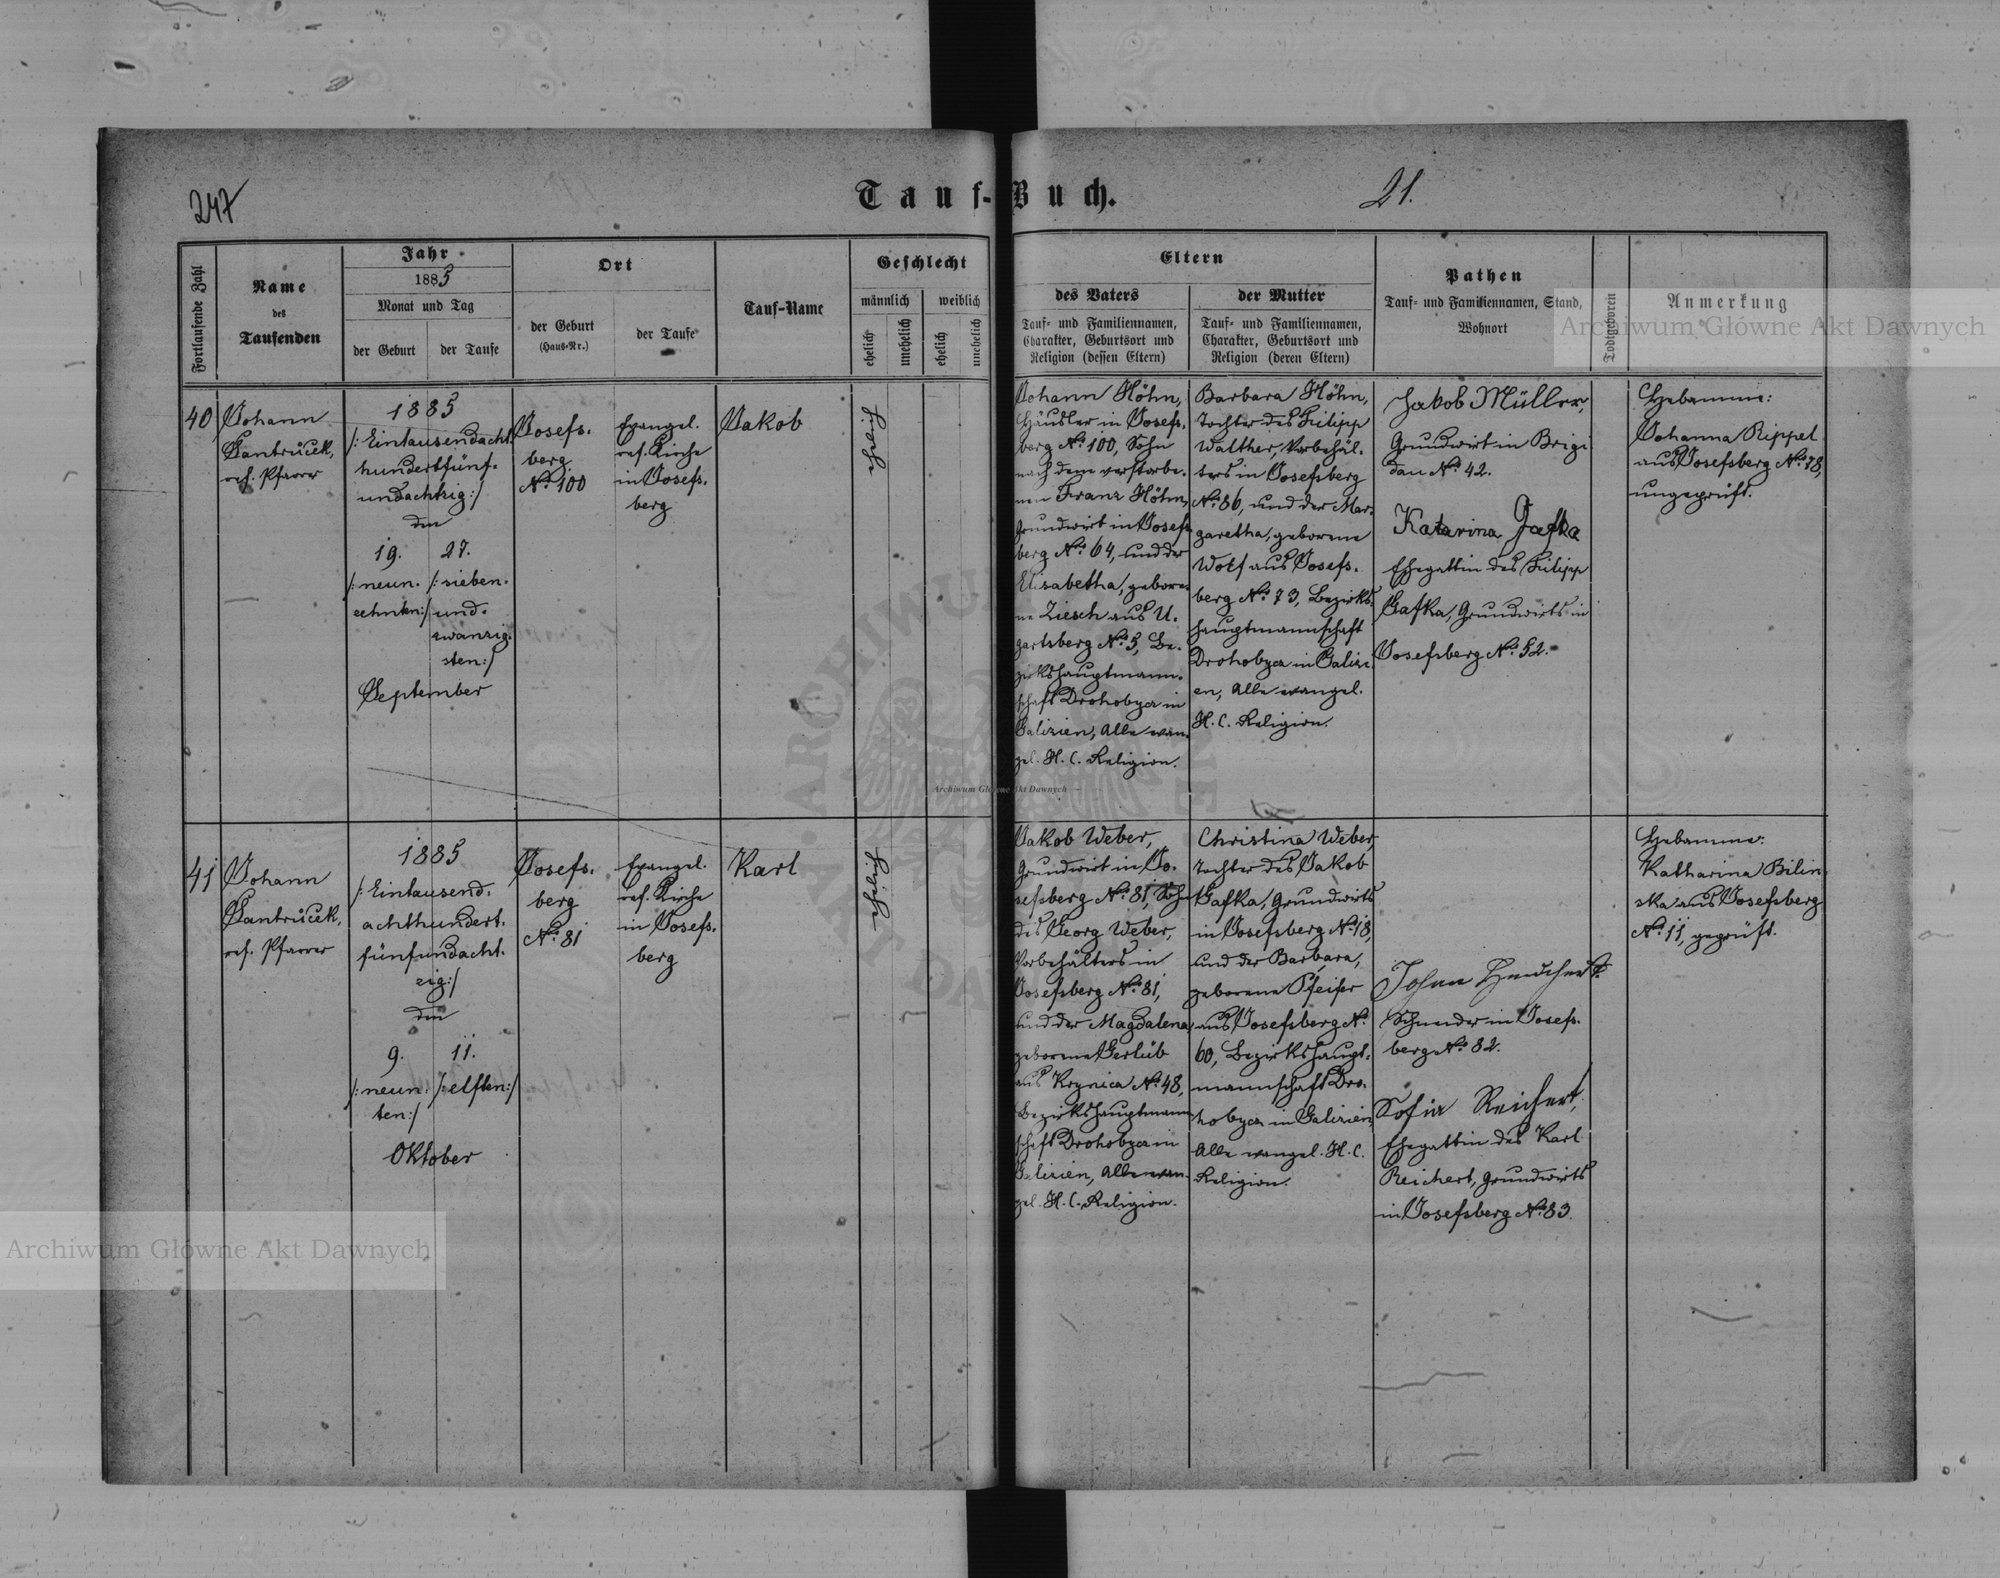 247
Tauf-Buch.
21.
Fortlaufende Zahl
Name
des
Taufenden
Jahr
1885
Monat und Tag
der Geburt
der Taufe
Ort
der Geburt
(Haus-Nr.)
der Taufe
Tauf-Name
Geschlecht
männlich
weiblich
ehelich
unehelich
ehelich
unehelich
Eltern
des Vaters
Tauf- und Familiennamen,
Charakter, Geburtsort und
Religion (dessen Eltern)
der Mutter
Tauf- und Familiennamen,
Charakter, Geburtsort und
Religion (deren Eltern)
Pathen
Tauf- und Familiennamen, Stand,
Wohnort
Todtgeboren
Anmerkung
40
Johann
Santrůček,
ref. Pfarrer
1885
/: Eintausendacht
hundertfünf-
undachtzig :/
den
19.
/: neun.
zehnten :/
27.
/: sieben.
und.
zwanzig.
sten :/
September
Josefs.
berg
No. 100
Evangel.
ref. Kirche
in Josefs.
berg
Jakob
ehelich
Johann Höhn,
Häusler in Josefs.
berg No. 100, Sohn
nach dem verstorbe.
nen Franz Höhn,
Grundwirt in Josefs.
berg No. 64, und der
Elisabetha, gebore.
ne Ziesch aus U.
gartsberg No. 5, Be.
zirkshauptmann.
schaft Drohobycz in
Galizien, Alle evan.
gel. H. C. Religion.
Barbara Höhn,
Tochter des Filipp
Walther, Vorbehäl.
ters in Josefsberg
No. 86, und der Mar.
garetha, geborene
Wolf aus Josefs.
berg No. 73, Bezirks.
hauptmannschaft
Drohobycz in Galizi.
en, Alle evangel.
H. C. Religion.
Jakob Müller,
Grundwirt in Brigi
dau No. 42.
Katarina Gafka
Ehegattin des Filipp
Gafka, Grundwirts in
Josefsberg No. 52.
Hebamme:
Johanna Rippel
aus Josefsberg No. 78,
ungeprüft.
41
Johann
Santrůček,
ref. Pfarrer
1885
/: Eintausend.
achthundert.
fünfundacht.
zig :/
den
9.
/: neun.
ten :/
11.
/: elften :/
Oktober
Josefs.
berg
No. 81
Evangel.
ref. Kirche
in Josefs.
berg
Karl
ehelich
Jakob Weber,
Grundwirt in Jo.
sefsberg No. 81, Sohn
des Georg Weber,
Vorbehälters in
Josefsberg No. 81,
und der Magdalena,
geborene Gerlüb
aus Krynica No. 48,
Bezirkshauptmann
schaft Drohobycz in
Galizien, Alle evan.
gel. H. C. Religion.
Christina Weber,
Tochter des Jakob
Gafka, Grundwirts
in Josefsberg No. 18,
und der Barbara,
geborene Pfeifer
aus Josefsberg No.
60, Bezirkshaupt.
mannschaft Dro.
hobycz in Galizien,
Alle evangel. H. C.
Religion.
Johan
Schneider in Josefs.
berg No. 82.
Sofia Reichert,
Ehegattin des Karl
Reichert, Grundwirts
in Josefsberg No. 83
Hebamme:
Katharina Bilin
ska aus Josefsberg
No. 11, geprüft.
Archiwum Główne Akt Dawnych
Archiwum Główne Akt Dawnych
Archiwum Główne Akt Dawnych